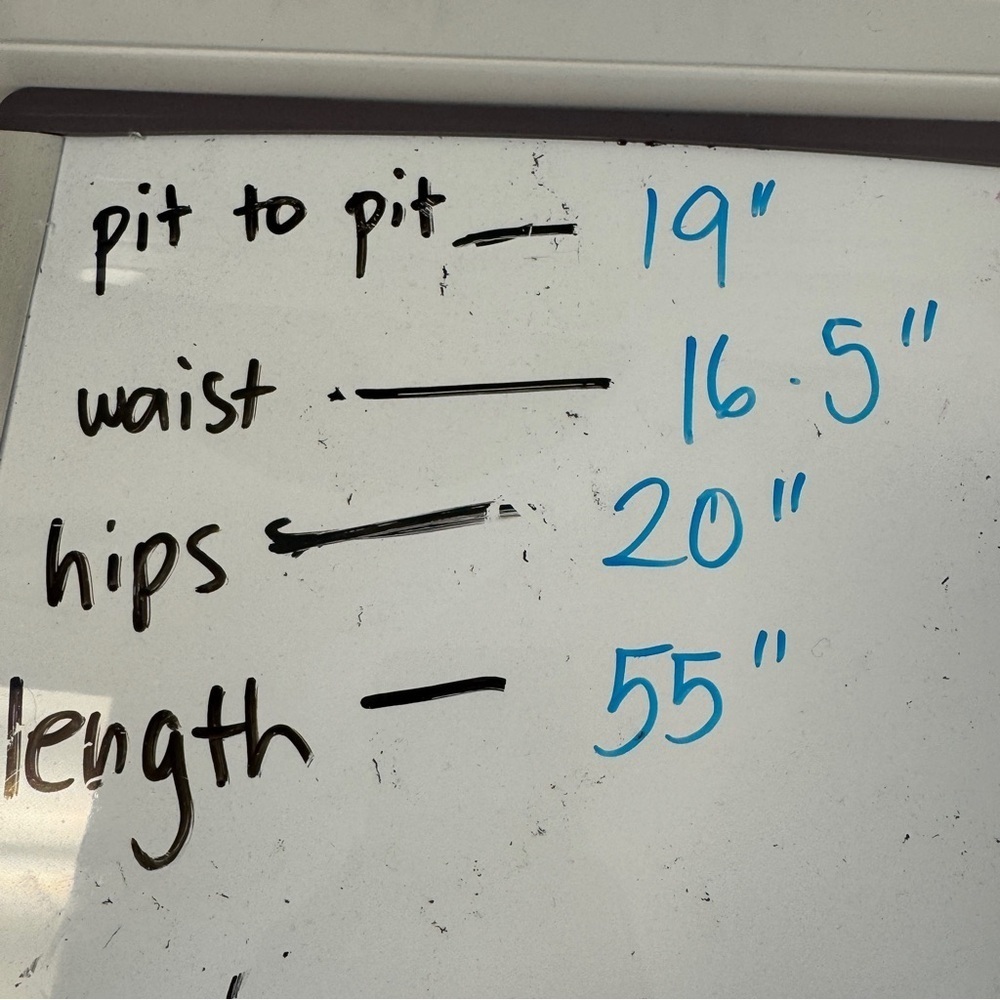 pit to pit — 19"
waist — 16.5"
hips — 20"
length — 55"